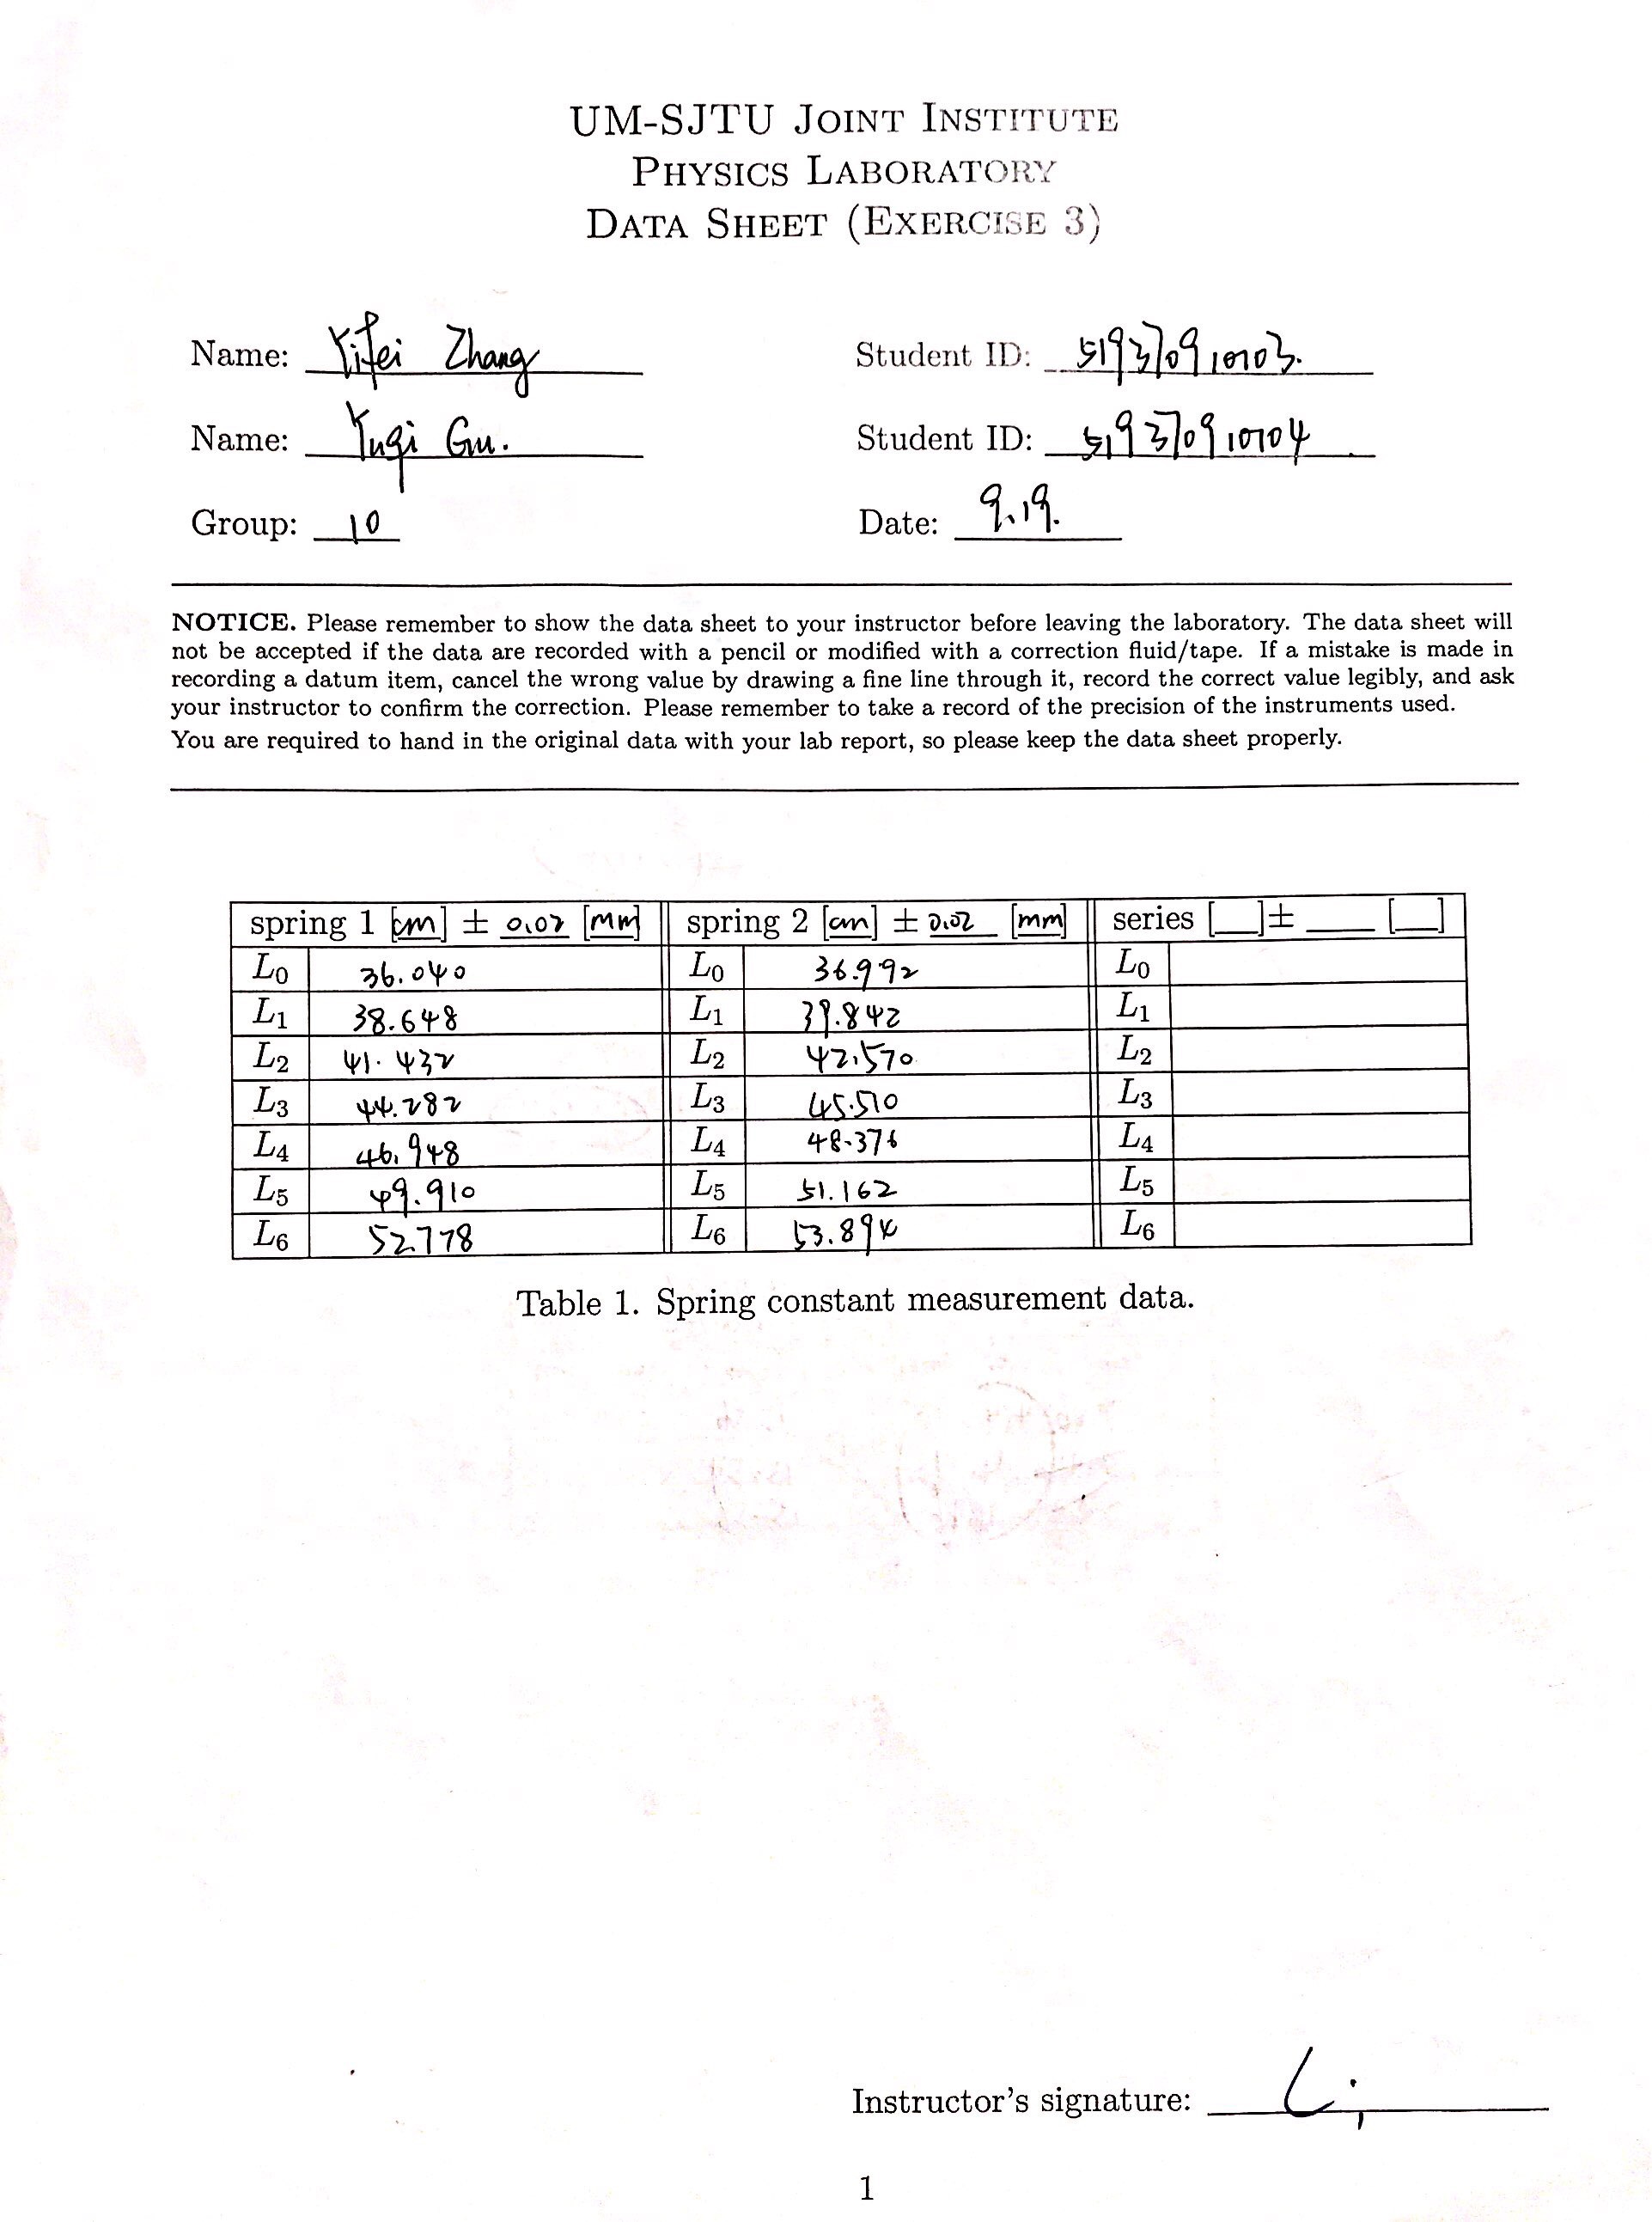 UM-SJTU JOINT INSTITUTE
PHYSICS LABORATORY
DATA SHEET (EXERCISE 3)
Name: Yifei Zhang Student ID: 519370910103.
Name: Yuqi Gu. Student ID: 519370910104
Group: 10 Date: 9.19.
NOTICE. Please remember to show the data sheet to your instructor before leaving the laboratory. The data sheet will
not be accepted if the data are recorded with a pencil or modified with a correction fluid/tape. If a mistake is made in
recording a datum item, cancel the wrong value by drawing a fine line through it, record the correct value legibly, and ask
your instructor to confirm the correction. Please remember to take a record of the precision of the instruments used.
You are required to hand in the original data with your lab report, so please keep the data sheet properly.
spring 1 [cm] ± 0.02 [mm] spring 2 [cm] ± 0.02 [mm] series [__] ± ____ [__]
L0 36.040 L0 36.992 L0
L1 38.648 L1 39.842 L1
L2 41.432 L2 42.570 L2
L3 44.282 L3 45.510 L3
L4 46.948 L4 48.376 L4
L5 49.910 L5 51.162 L5
L6 52.778 L6 53.894 L6
Table 1. Spring constant measurement data.
Instructor's signature: Li
1